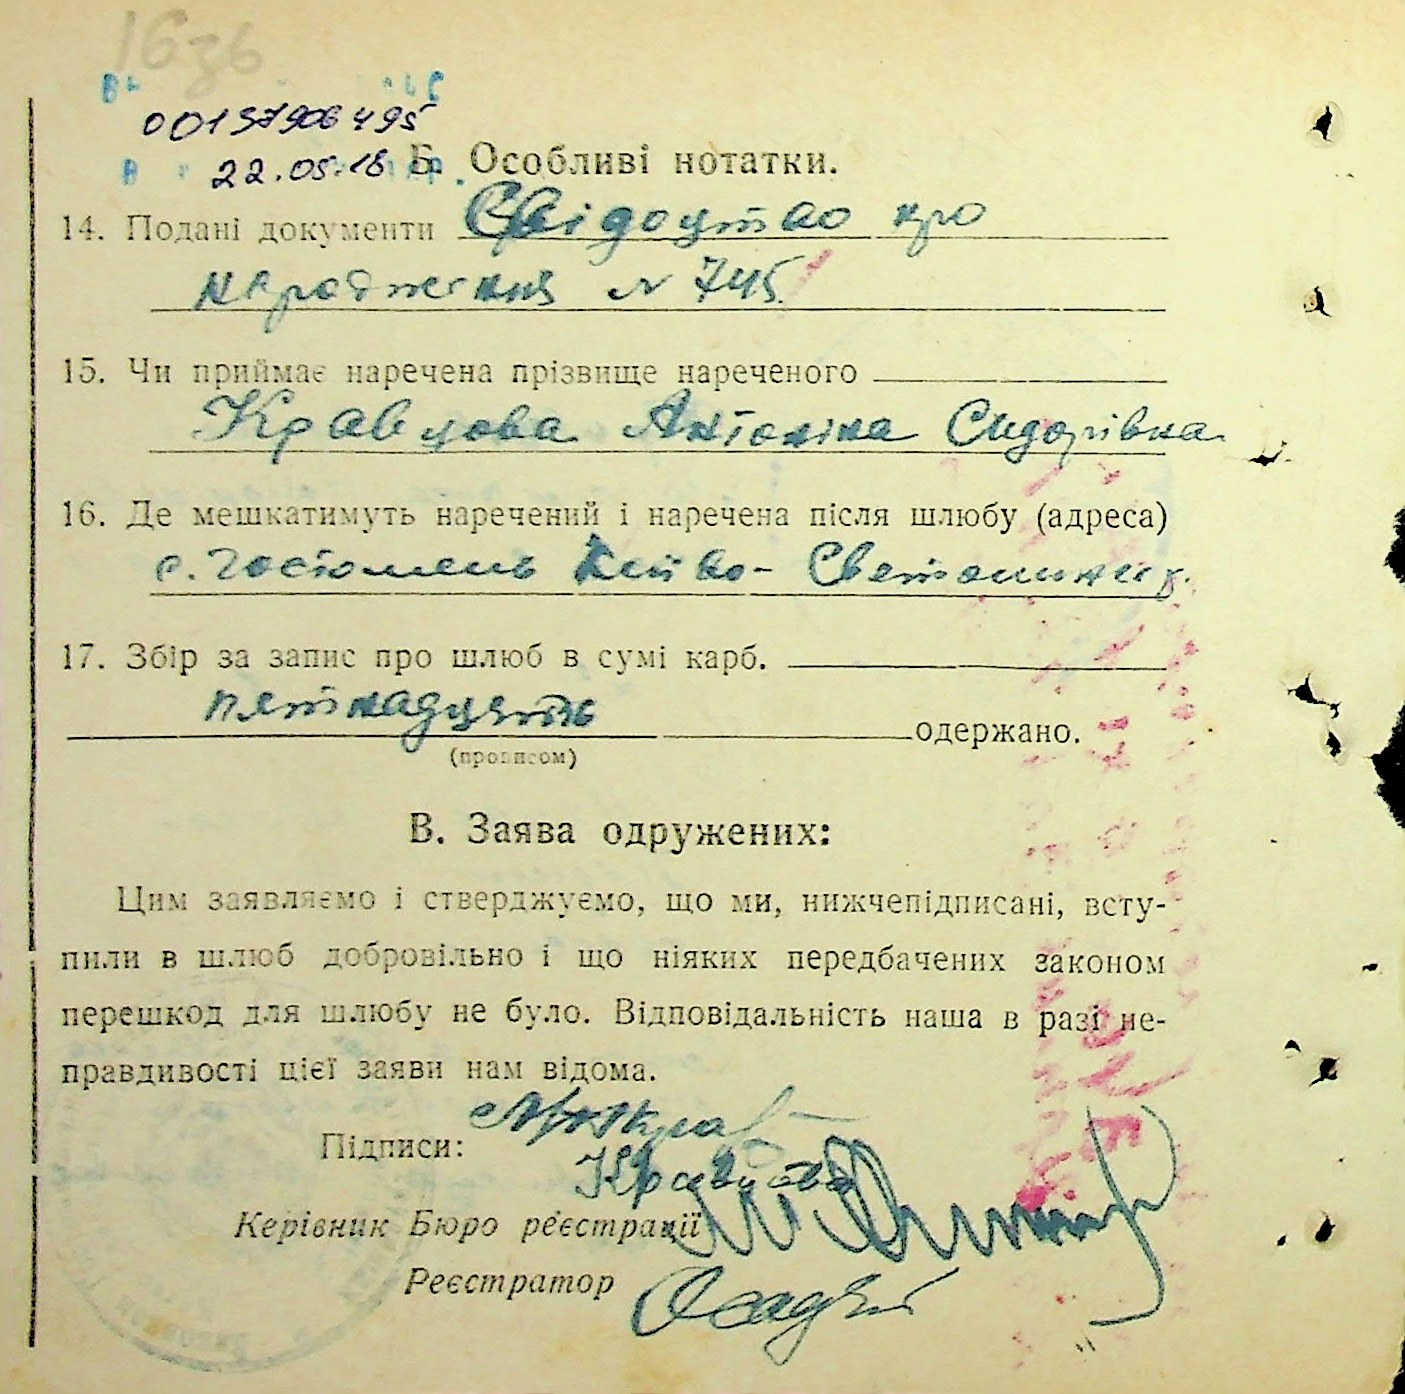 16зв
00157906495
22.05.18 Б. Особливі нотатки.
14. Подані документи Свідоцтво про
народження № 745.
15. Чи приймає наречена прізвище нареченого
Кравцова Антоніна Сидорівна
16. Де мешкатимуть наречений і наречена після шлюбу (адреса)
с. Гостомель Києво-
17. Збір за запис про шлюб в сумі карб.
пятнадцять одержано.
(прописом)
В. Заява одружених:
Цим заявляємо і стверджуємо, що ми, нижчепідписані, всту-
пили в шлюб добровільно і що ніяких передбачених законом
перешкод для шлюбу не було. Відповідальність наша в разі не-
правдивості цієї заяви нам відома.
Підписи:
Кравцова
Керівник Бюро реєстрації
Реєстратор